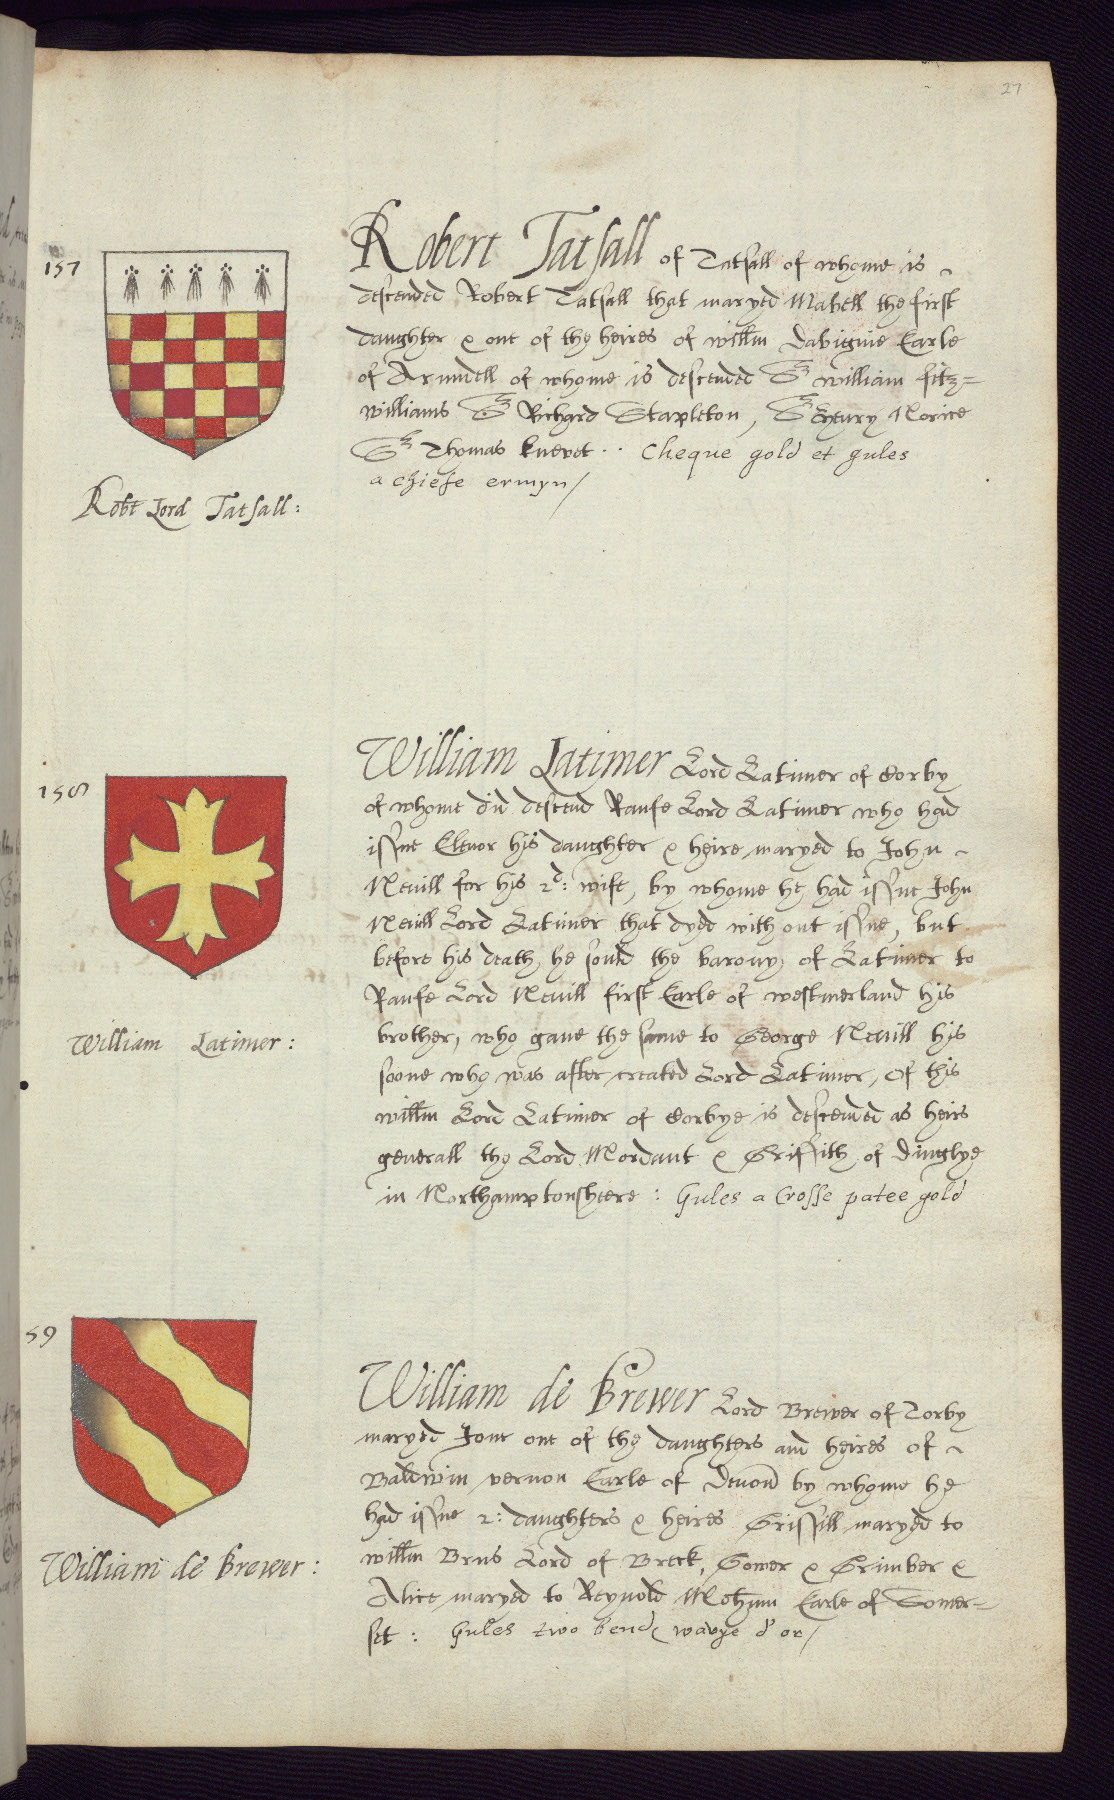 27
157
Robert Tatsall of Tatsall of whome is
descended Robert Tatsall that maryed Mabell the first
daughter & one of the heires of willm Dabignie Earle
of Arundell of whome is descended Sr william fitz=
williams Sr Richard Stapleton, Sr Henry Norice
Sr Thomas knevet ·· Cheque gold et gules
a chiefe ermyn/
Robt Lord Tatsall:
158
William Latimer Lord Latimer of Corby
of whome did descend Raufe Lord Latimer who had
issue Elenor his daughter & heire maryed to John
Nevill for his 2d: wife, by whome he had issue John
Nevill Lord Latimer that dyed with out issue, but
before his death he sould the barony of Latimer to
Raufe Lord Nevill first Earle of westmerland his
brother, who gaue the same to George Nevill his
soone who was after created Lord Latimer, Of this
willm Lord Latimer of Corbye is descended as heirs
generall the Lord Mordant & Griffith of Dinglye
in Northamptonsheere : Gules a Crosse patee gold
William Latimer:
59
William de Brewer Lord Brewer of Torby
maryed Jone one of the daughters and heires of
Baldwin vernon Earle of Devon by whome he
had issue 2: daughters & heires Grissill maryed to
willm Brus Lord of Breck, Gower & Grimber &
Alice maryed to Reynold Mohum Earle of Somer=
set : Gules two bend wavye d'or/
William de Brewer: